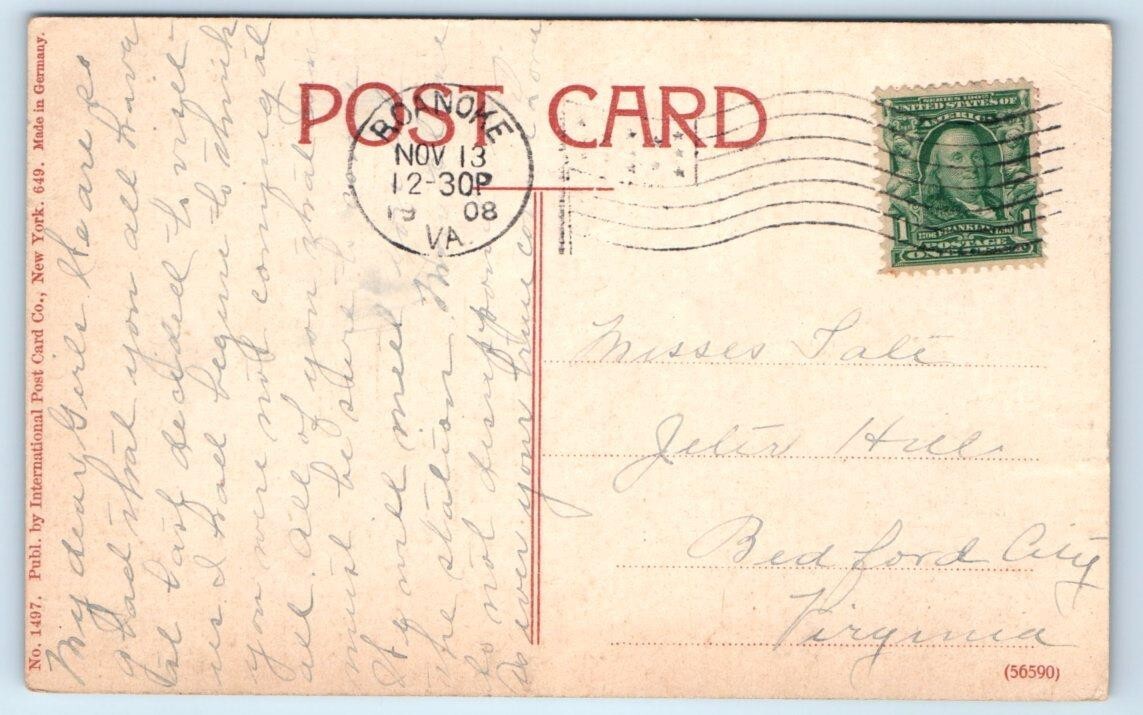 No. 1497. Publ. by International Post Card Co., New York. 649. Made in Germany.
POST CARD
ROANOKE
NOV 13
12-30P
19 08
VA.
SERIES 1902
UNITED STATES OF
AMERICA
1 1706 FRANKLIN 1790 1
POSTAGE
ONE
My dear Girls We are so
glad that you all have
at last decided to visit
us I had begun to think
you were not coming at
all. All of you
must be sure to
Hy will meet
the station
to not disappoint
As ever your true
Misses Tate
Jeter Hill
Bedford City
Virginia
(56590)